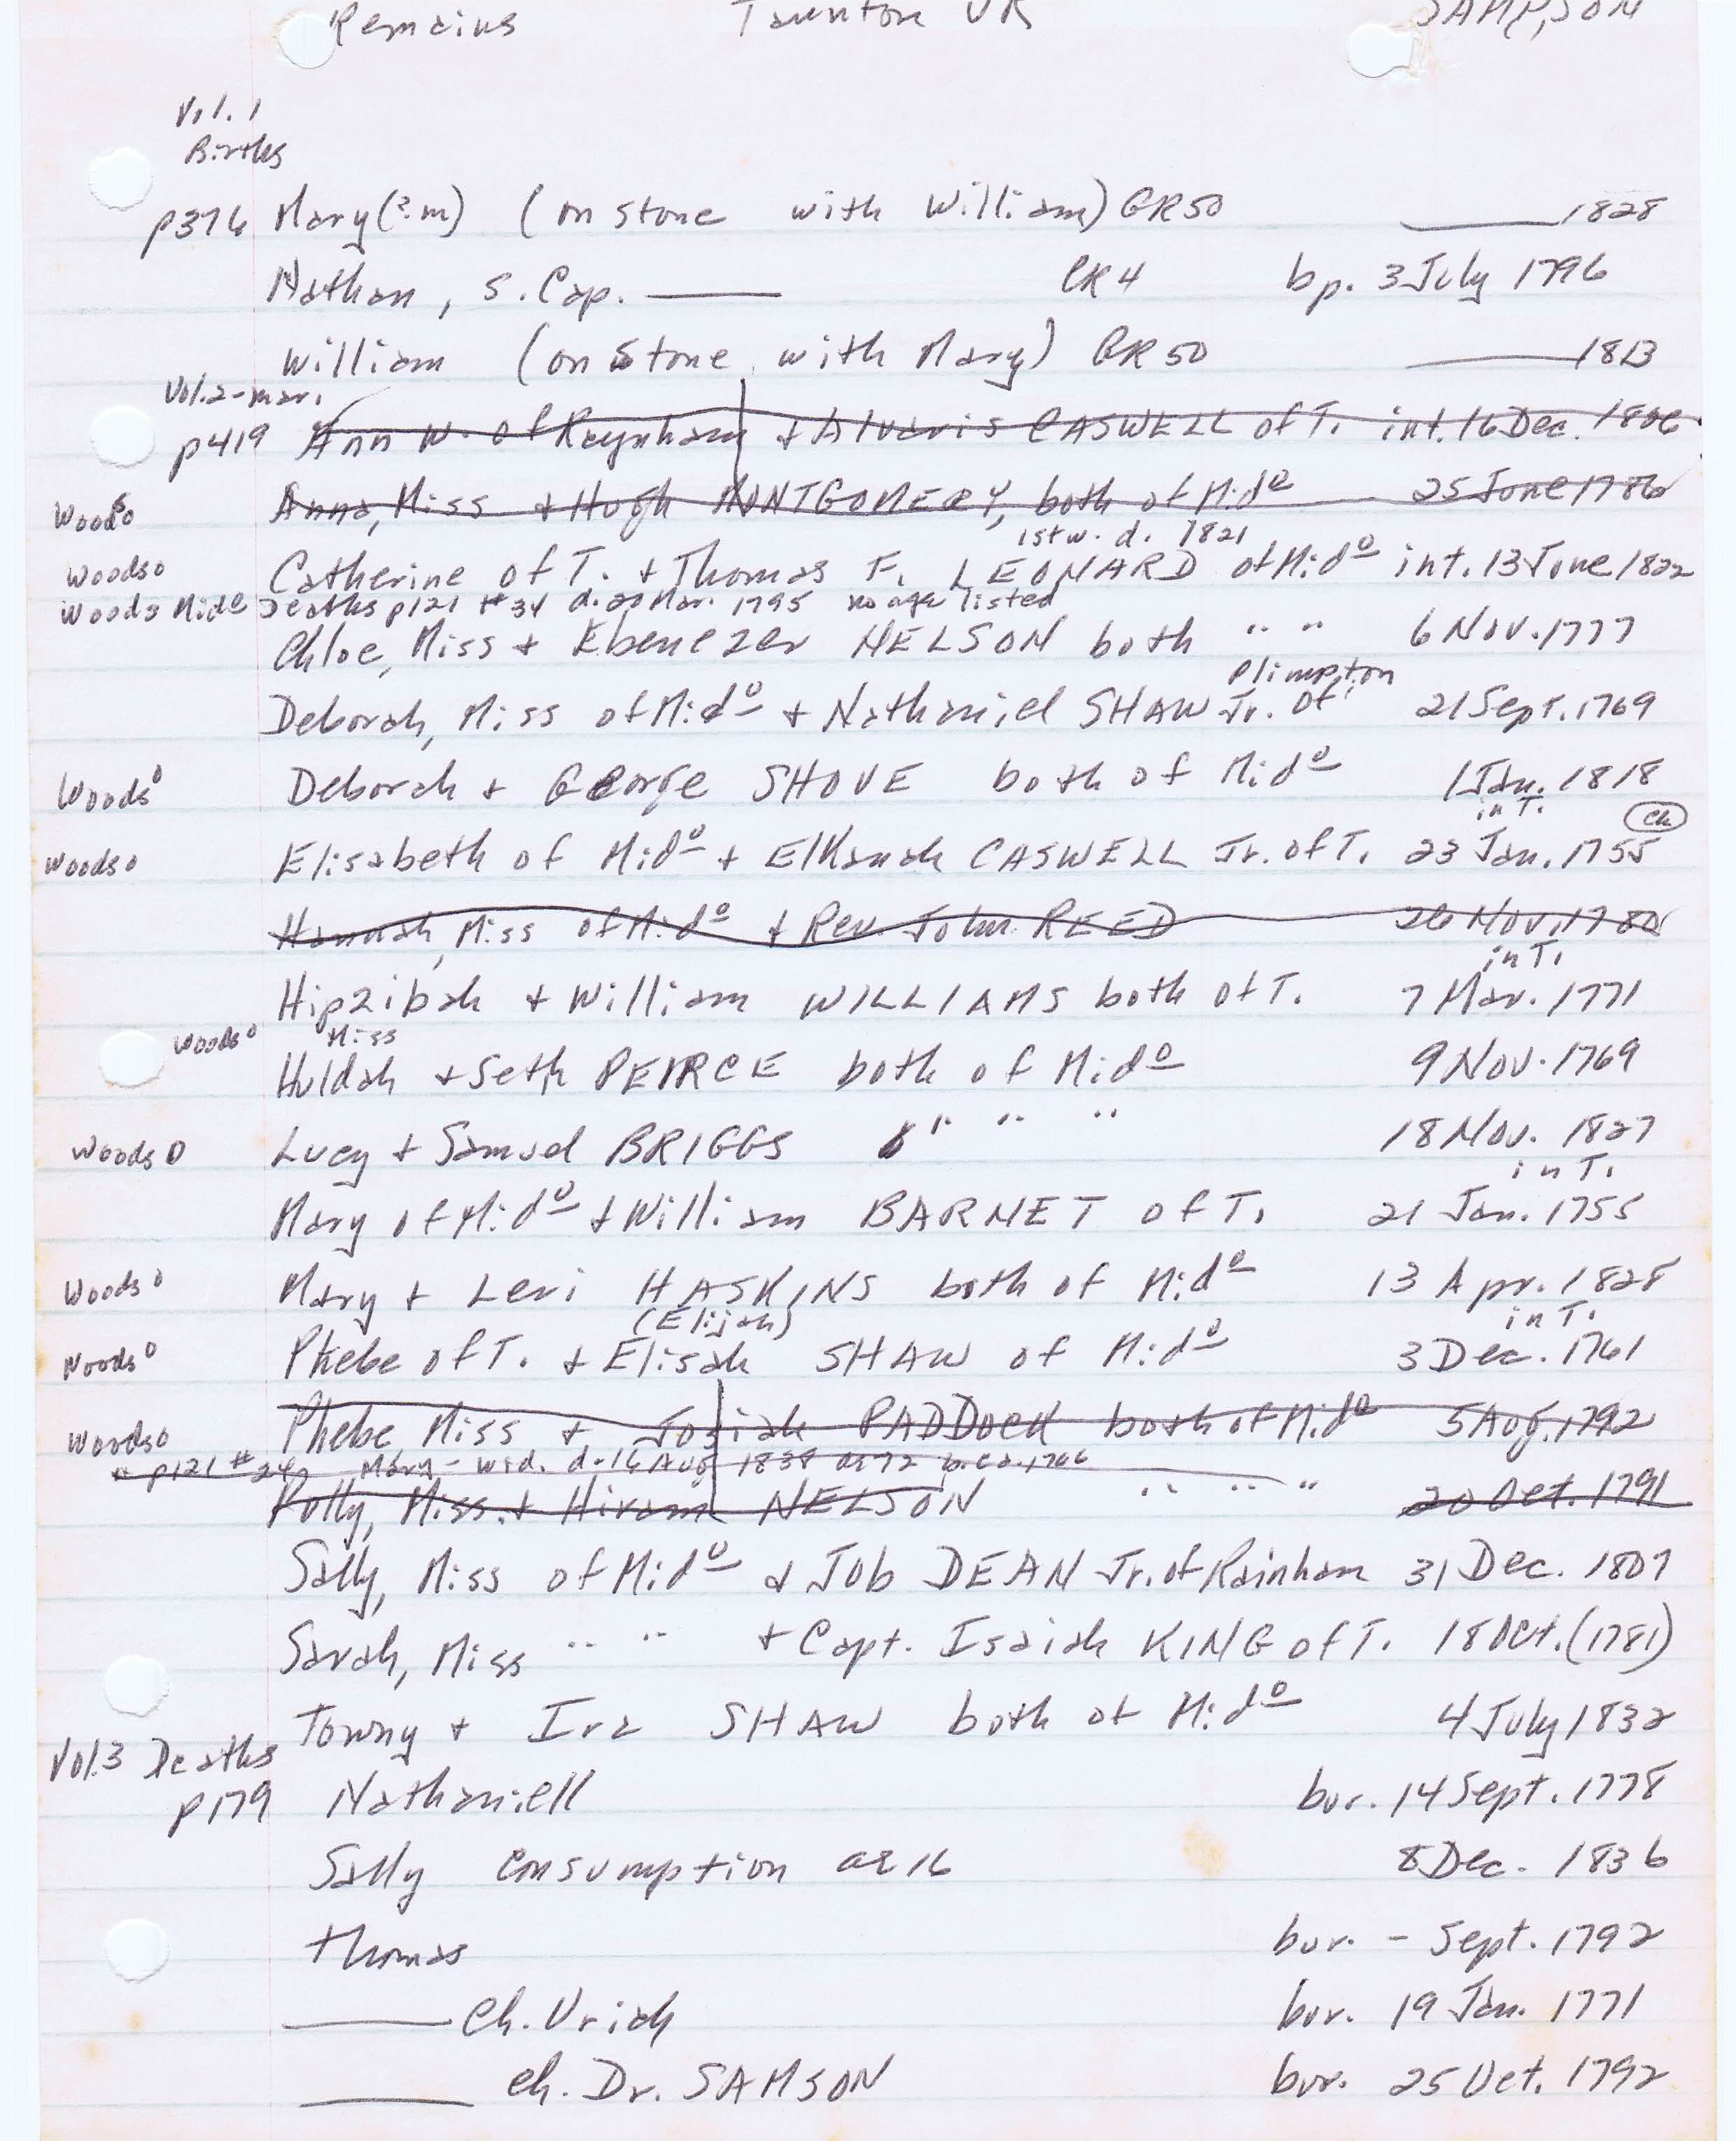 Remains Taunton VR SAMPSON
Vol. 1
Births
p376 Mary (?m) (on stone with William) GR50 ——— 1828
Nathan, s. Cap. ——— CR4 bp. 3 July 1796
William (on stone with Mary) GR50 ——— 1813
Vol. 2 - mar.
p419 Ann W. of Raynham + Alvaris CASWELL of T. int. 16 Dec. 1806
Woods⁰ Anna, Miss + Hugh MONTGOMERY, both of Mid⁰ 25 June 1786
1st w. d. 1821
Woodso Catherine of T. + Thomas F. LEONARD of Mid⁰ int. 13 June 1822
Woods Mid Deaths p121 #34 d. 20 Mar. 1795 no age listed
Chloe, Miss + Ebenezer NELSON both " " 6 Nov. 1777
Plimpton
Deborah, Miss of Mid⁰ + Nathaniel SHAW Jr. of 21 Sept. 1769
Woods⁰ Deborah + George SHOVE both of Mid⁰ 1 Jan. 1818
in T. ch
Woodso Elisabeth of Mid⁰ + Elkanah CASWELL Jr. of T. 23 Jan. 1755
Hannah, Miss of Mid⁰ + Rev. John REED 26 Nov. 1780
in T.
Hipzibah + William WILLIAMS both of T. 7 Mar. 1771
Woods⁰ Miss
Huldah + Seth PEIRCE both of Mid⁰ 9 Nov. 1769
Woods O Lucy + Samuel BRIGGS " " " 18 Nov. 1827
in T.
Mary of Mid⁰ + William BARNET of T. 21 Jan. 1755
Woods⁰ Mary + Levi HASKINS both of Mid⁰ 13 Apr. 1828
(Elijah) in T.
Woods⁰ Phebe of T. + Elisah SHAW of Mid⁰ 3 Dec. 1761
Woodso Phebe Miss + Josiah PADDOCK both of Mid⁰ 5 Aug. 1792
" p121 #24 Mary - wid. d. 16 Aug 1838 ae 72 b. ca. 1766
Polly, Miss. + Hiram NELSON " " " 20 Oct. 1791
Sally, Miss of Mid⁰ + Job DEAN Jr. of Rainham 31 Dec. 1807
Sarah, Miss " " + Capt. Isaiah KING of T. 18 Oct. (1781)
Towny + Ira SHAW both of Mid⁰ 4 July 1832
Vol. 3 Deaths
p179 Nathaniell bur. 14 Sept. 1778
Sally Consumption ae 16 8 Dec. 1836
Thomas bur. - Sept. 1792
——— ch. Uriah bur. 19 Jan. 1771
——— ch. Dr. SAMSON bur. 25 Oct. 1792